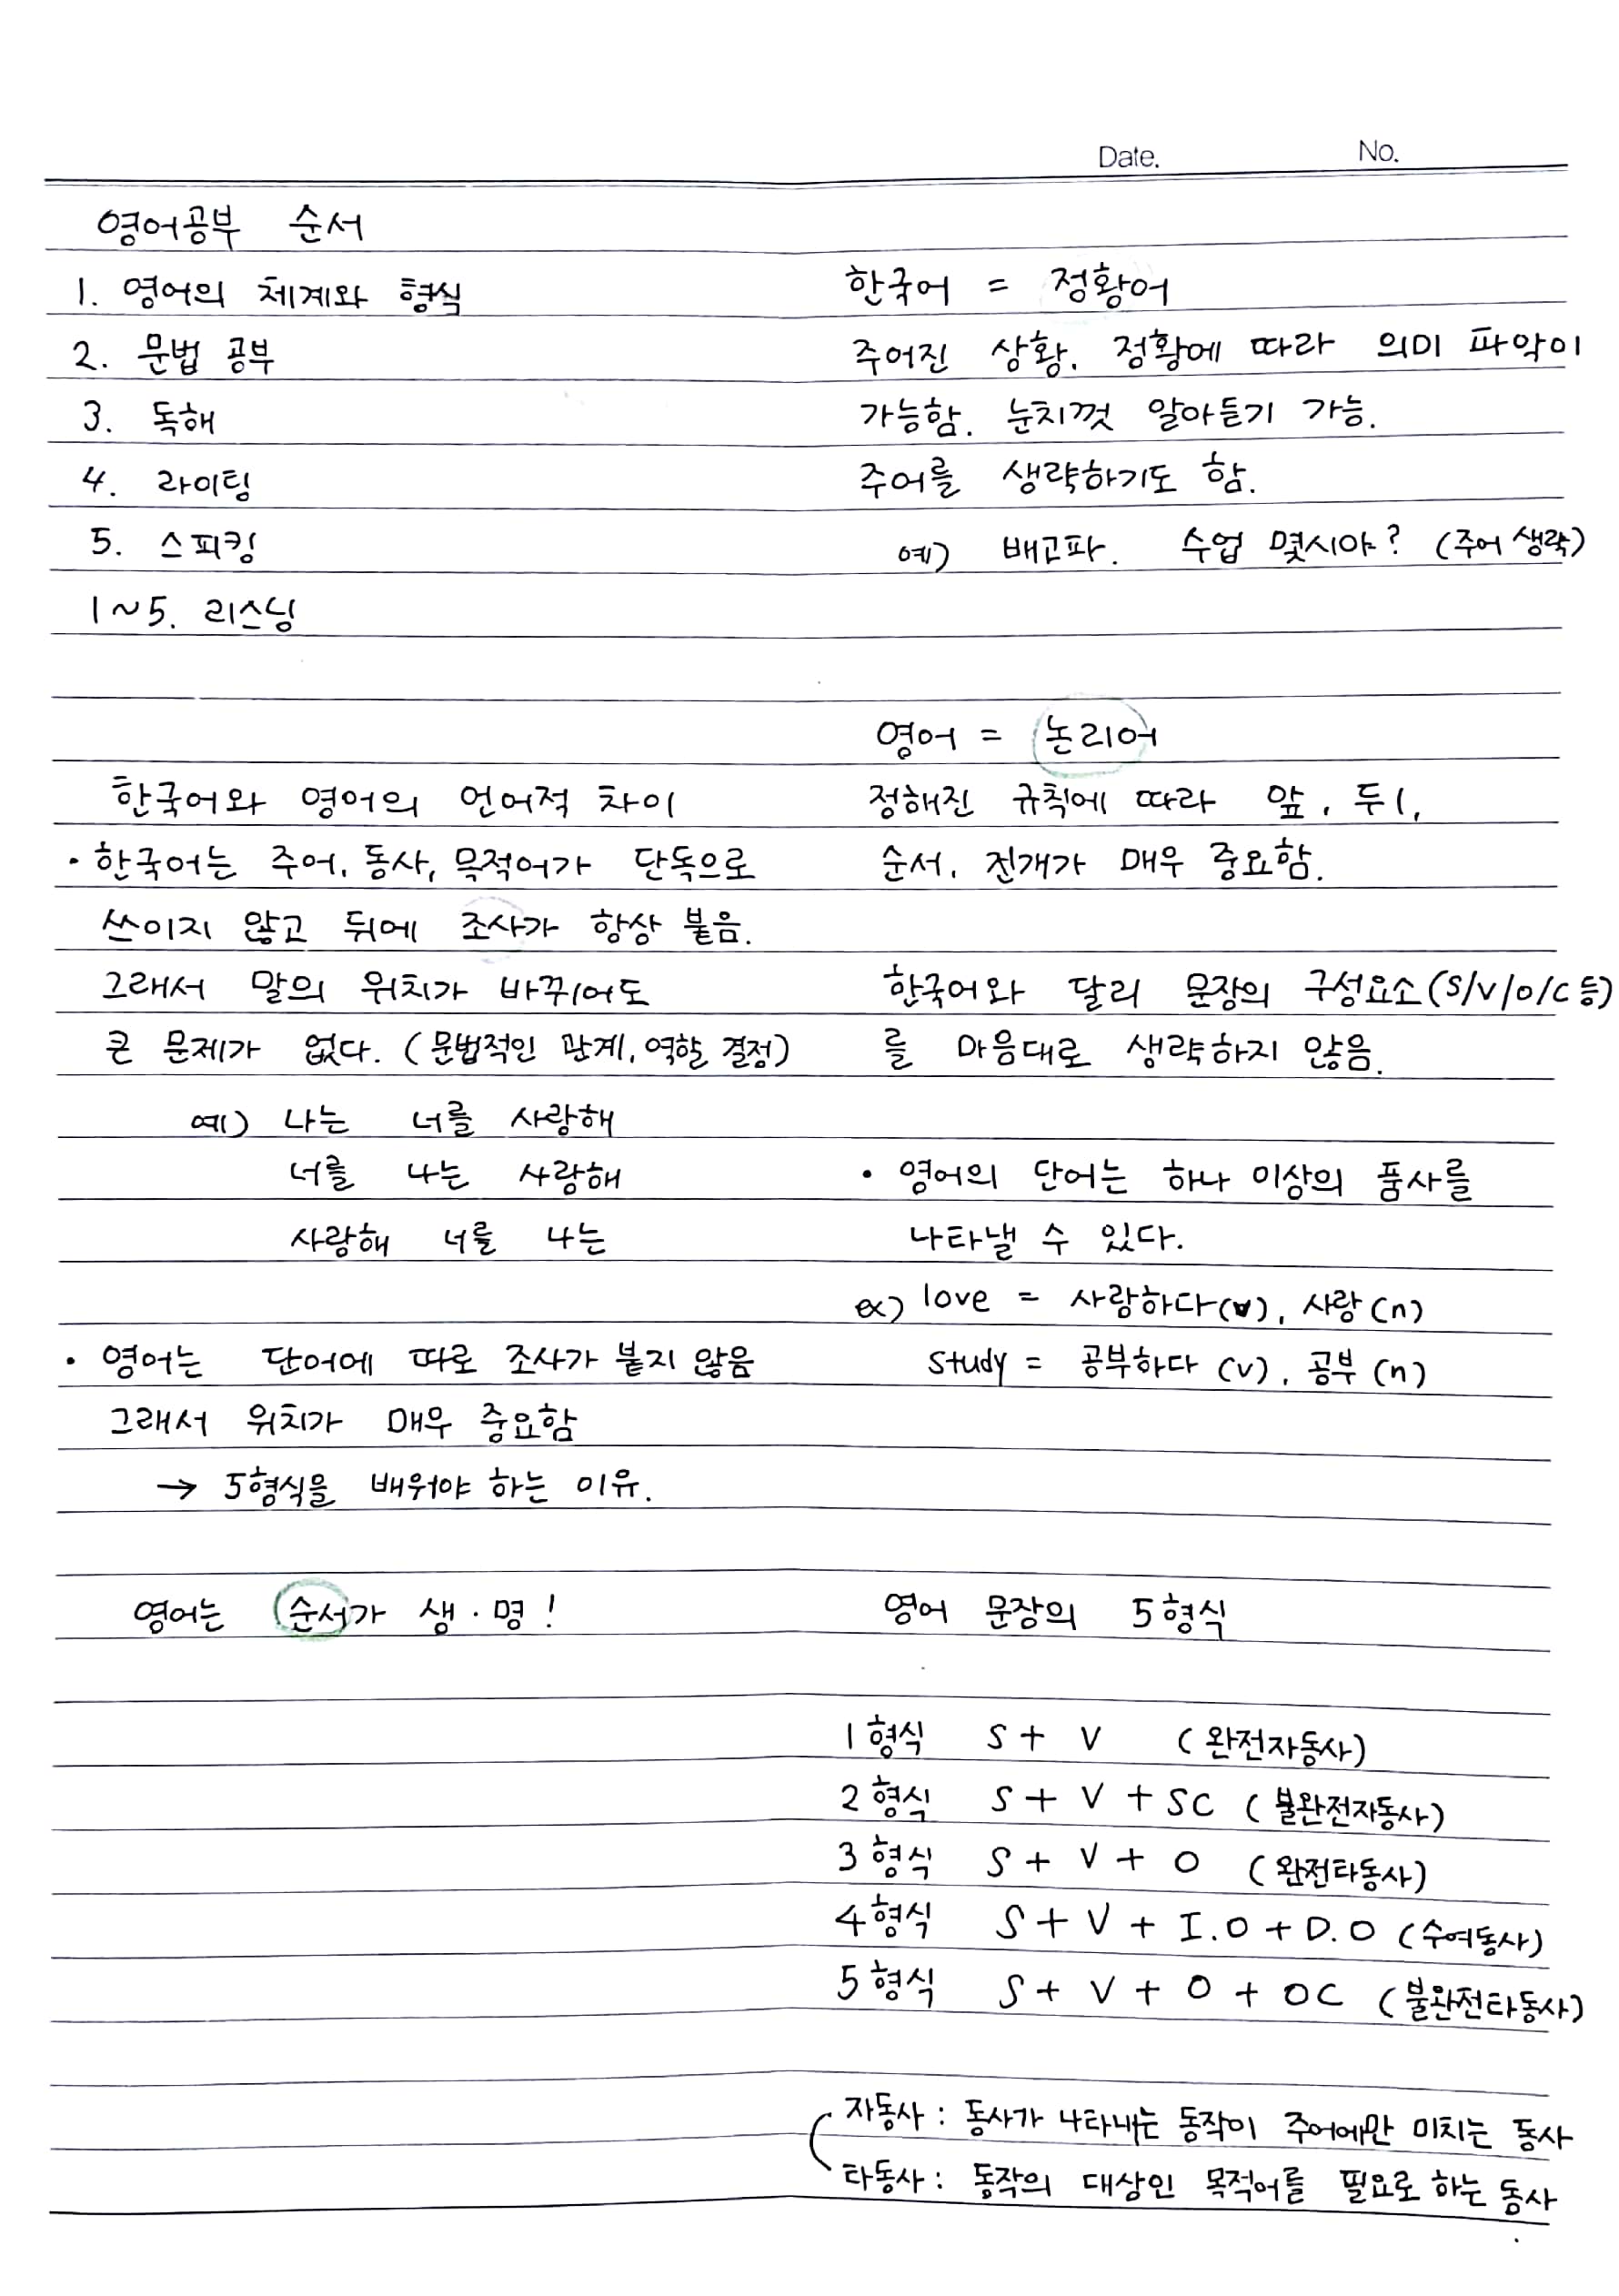 Date. No.
영어공부 순서
1. 영어의 체계와 형식
2. 문법 공부
3. 독해
4. 라이팅
5. 스피킹
1~5. 리스닝
한국어와 영어의 언어적 차이
• 한국어는 주어, 동사, 목적어가 단독으로
쓰이지 않고 뒤에 조사가 항상 붙음.
그래서 말의 위치가 바뀌어도
큰 문제가 없다. (문법적인 관계, 역할 결정)
예) 나는 너를 사랑해
너를 나는 사랑해
사랑해 너를 나는
• 영어는 단어에 따로 조사가 붙지 않음
그래서 위치가 매우 중요함
→ 5형식을 배워야 하는 이유.
영어는 순서가 생·명!
한국어 = 정황어
주어진 상황, 정황에 따라 의미 파악이
가능함. 눈치껏 알아듣기 가능.
주어를 생략하기도 함.
예) 배고파. 수업 몇시야? (주어 생략)
영어 = 논리어
정해진 규칙에 따라 앞, 뒤,
순서, 전개가 매우 중요함.
한국어와 달리 문장의 구성요소(S/V/O/C 등)
를 마음대로 생략하지 않음.
• 영어의 단어는 하나 이상의 품사를
나타낼 수 있다.
ex) love = 사랑하다(v), 사랑(n)
study = 공부하다 (v), 공부 (n)
영어 문장의 5형식
1형식 S + V (완전자동사)
2형식 S + V + SC (불완전자동사)
3형식 S + V + O (완전타동사)
4형식 S + V + I.O + D.O (수여동사)
5형식 S + V + O + OC (불완전타동사)
자동사 : 동사가 나타내는 동작이 주어에만 미치는 동사
타동사 : 동작의 대상인 목적어를 필요로 하는 동사